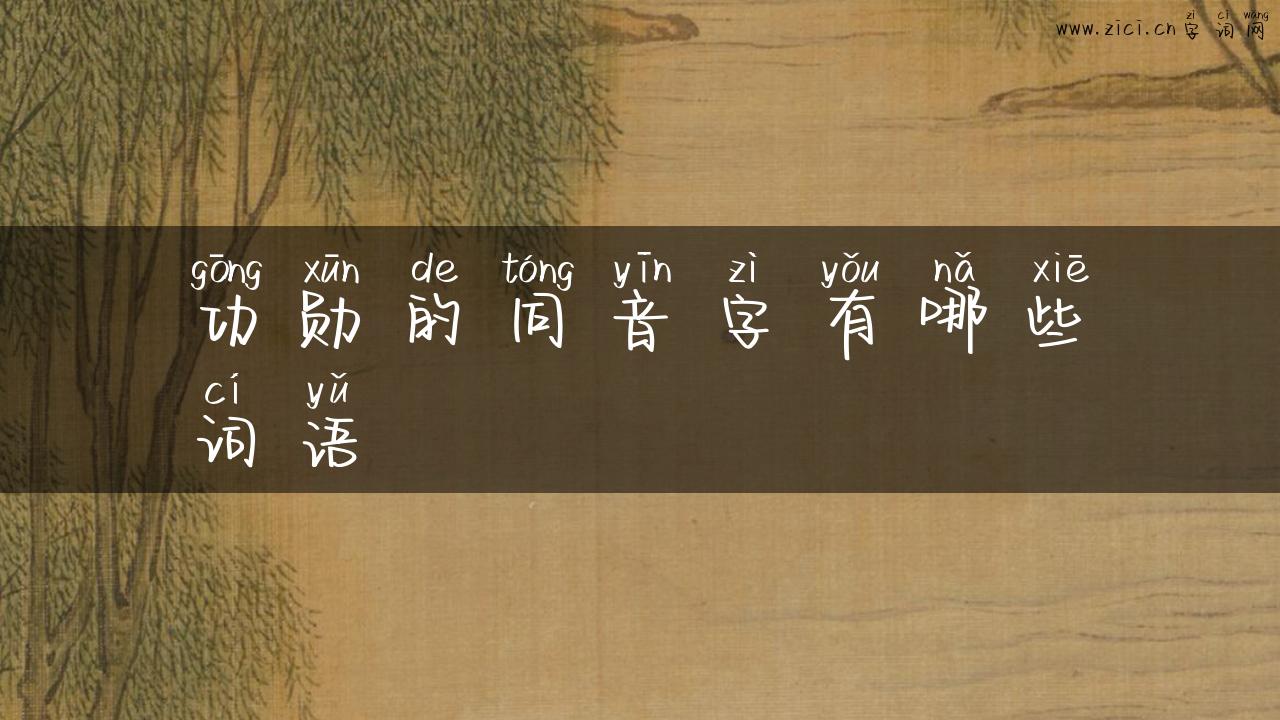 zì cí wǎng
www.zici.cn 字词网
gōng xūn de tóng yīn zì yǒu nǎ xiē
功勋的同音字有哪些
cí yǔ
词语